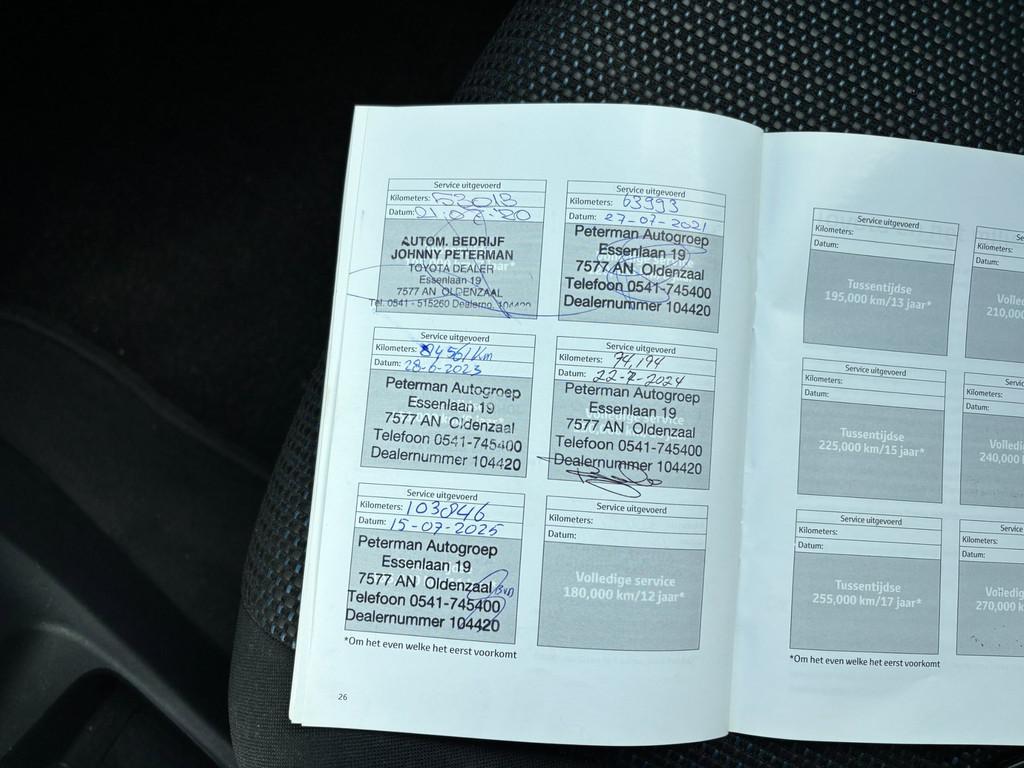 Service uitgevoerd
Kilometers: 53018
Datum: 01-07-'20
AUTOM. BEDRIJF
JOHNNY PETERMAN
TOYOTA DEALER
Essenlaan 19
7577 AN OLDENZAAL
Tel. 0541 - 515260 Dealerno. 104420
Service uitgevoerd
Kilometers: 63993
Datum: 27-07-2021
Peterman Autogroep
Essenlaan 19
7577 AN Oldenzaal
Telefoon 0541-745400
Dealernummer 104420
Service uitgevoerd
Kilometers: 84561 Km
Datum: 28-6-2023
Peterman Autogroep
Essenlaan 19
7577 AN Oldenzaal
Telefoon 0541-745400
Dealernummer 104420
Service uitgevoerd
Kilometers: 94,194
Datum: 22-7-2024
Peterman Autogroep
Essenlaan 19
7577 AN Oldenzaal
Telefoon 0541-745400
Dealernummer 104420
Service uitgevoerd
Kilometers: 103846
Datum: 15-07-2025
Peterman Autogroep
Essenlaan 19
7577 AN Oldenzaal
Telefoon 0541-745400
Dealernummer 104420
Service uitgevoerd
Kilometers:
Datum:
Volledige service
180,000 km/12 jaar*
*Om het even welke het eerst voorkomt
26
Service uitgevoerd
Kilometers:
Datum:
Tussentijdse
195,000 km/13 jaar*
Kilometers:
Datum:
210,000
Service uitgevoerd
Kilometers:
Datum:
Tussentijdse
225,000 km/15 jaar*
Kilometers:
Datum:
240,000
Service uitgevoerd
Kilometers:
Datum:
Tussentijdse
255,000 km/17 jaar*
Service
Kilometers:
Datum:
270,000
*Om het even welke het eerst voorkomt